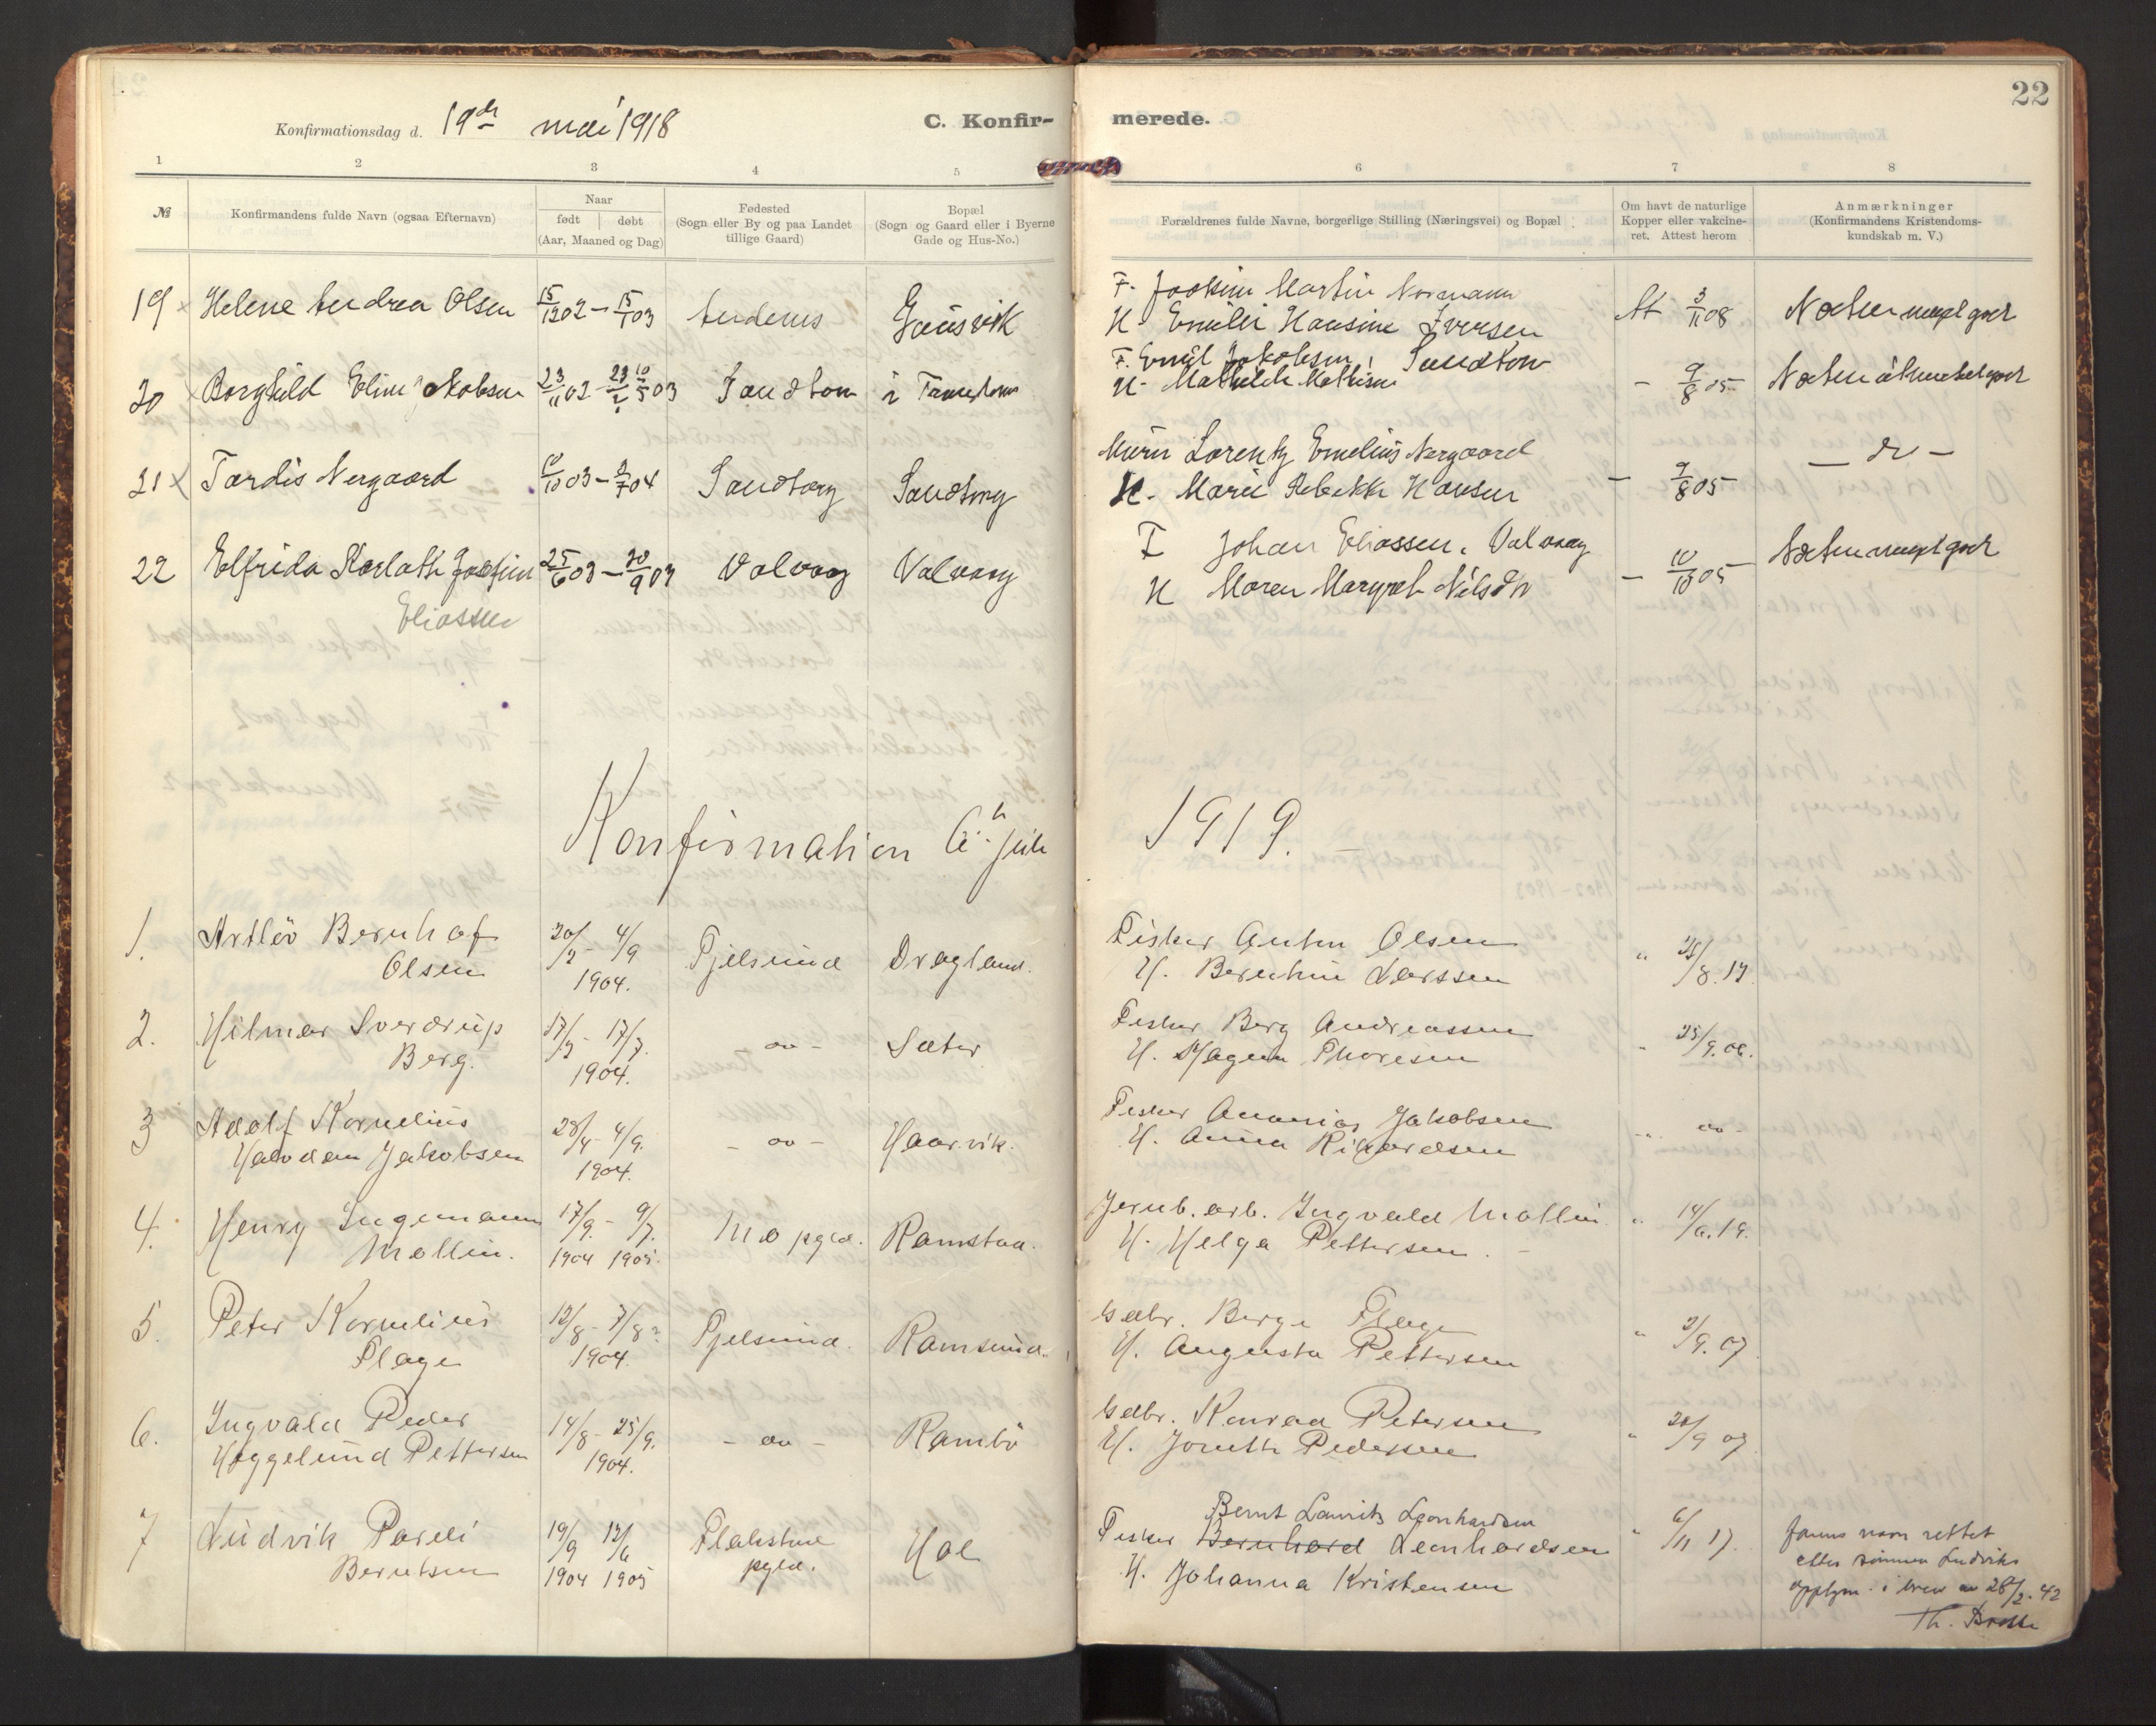 22
Konfirmationsdag d. 19de mai 1918
C. Konfir-
merede.
1 2 3 4 5 6 7 8
№
Konfirmandens fulde Navn (ogsaa Efternavn)
Naar
født | døbt
(Aar, Maaned og Dag)
Fødested
(Sogn eller By og paa Landet
tillige Gaard)
Bopæl
(Sogn og Gaard eller i Byerne
Gade og Hus-No.)
Forældrenes fulde Navne, borgerlige Stilling (Næringsvei) og Bopæl
Om havt de naturlige
Kopper eller vakcine-
ret. Attest herom
Anmærkninger
(Konfirmandens Kristendoms-
kundskab m. V.)
19 Helene Andrea Olsen 15/12 02 – 15/1 03 Andenes Gausvik
F. Joakim Martin Normann
H. Emilie Hansine Iversen
At 3/11 08
Næsten meget godt
20 Borghild Eline Jakobsen 23/11 02 Sandtorv
F. Emil Jakobsen, Sandtorv
H. Mathilde Mathisen
– 9/8 05
21 Tordis Nergaard 10/10 03 – 3/7 04 Sandtorg Sandtorg
Murer Lorentz Emelius Nergaard
H. Marie Rebekka Hansen
– 9/8 05
– do –
22 Elfrida Josefine 25/6 03 – 20/9 03 Valvaag Valvaag
Eliassen
F Johan Eliassen, Valvaag
H Maren Margret Nilsdtr
– 10/10 05
Næsten meget godt
Konfirmation 6te juli 1919.
1. Artlöv Bernhof
Olsen
20/2 – 4/9
1904.
Tjelsund Dragland.
Fisker Anton Olsen
H. Bernhine Larssen
" 25/8. 17
2. Hilmar Sverdrup
Berg.
17/2 – 17/7.
1904.
– do – Sæter
Fisker Berg Andreassen
H. Hagna Thoresen
" 25/9. 06.
3 Adolf Kornelius
Halvdan Jakobsen
28/4 – 4/9.
1904.
– do – Haarvik.
Fisker Ananias Jakobsen
H. Anna Rikardsen
– " do –
4. Henry Ingemann
Mollin.
17/9. – 9/7.
1904 1905.
Mo pgld. Ramstad.
Jernb. arb. Ingvald Mollin
H. Helga Pettersen.
" 14/6. 19.
5. Peter Kornelius
Plage
12/8 – 7/8?
1904.
Tjelsund. Ramsund.
Gdbr. Berge Plage
H. Augusta Pettersen
" 2/9. 07
6. Ingvald Peder
Hoggelund Pettersen
14/8 – 25/9.
1904.
– do – Rambö
Gdbr. Konrad Petersen
H. Jonette Pedersen
" 20/9 07
7 Ludvik Pareli
Berntsen
19/9 12/6
1904 1905
Flakstad
pgld.
Hol
Bernt Lauritz Leonhardsen
Fisker Bernhard Leonhardsen
H. Johanna Kristensen
" 6/11 17.
farens navn rettet
etter sönnen Ludviks
opplysn. i brev av 28/2. 42